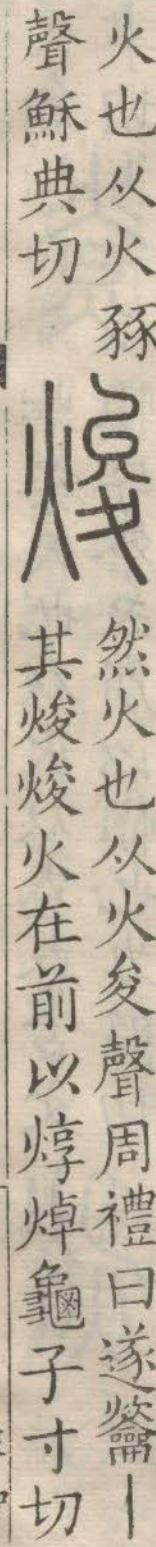 火也从火豩
聲穌典切
焌
然火也从火夋聲周禮曰遂籥
其焌焌火在前以焞焯龜子寸切